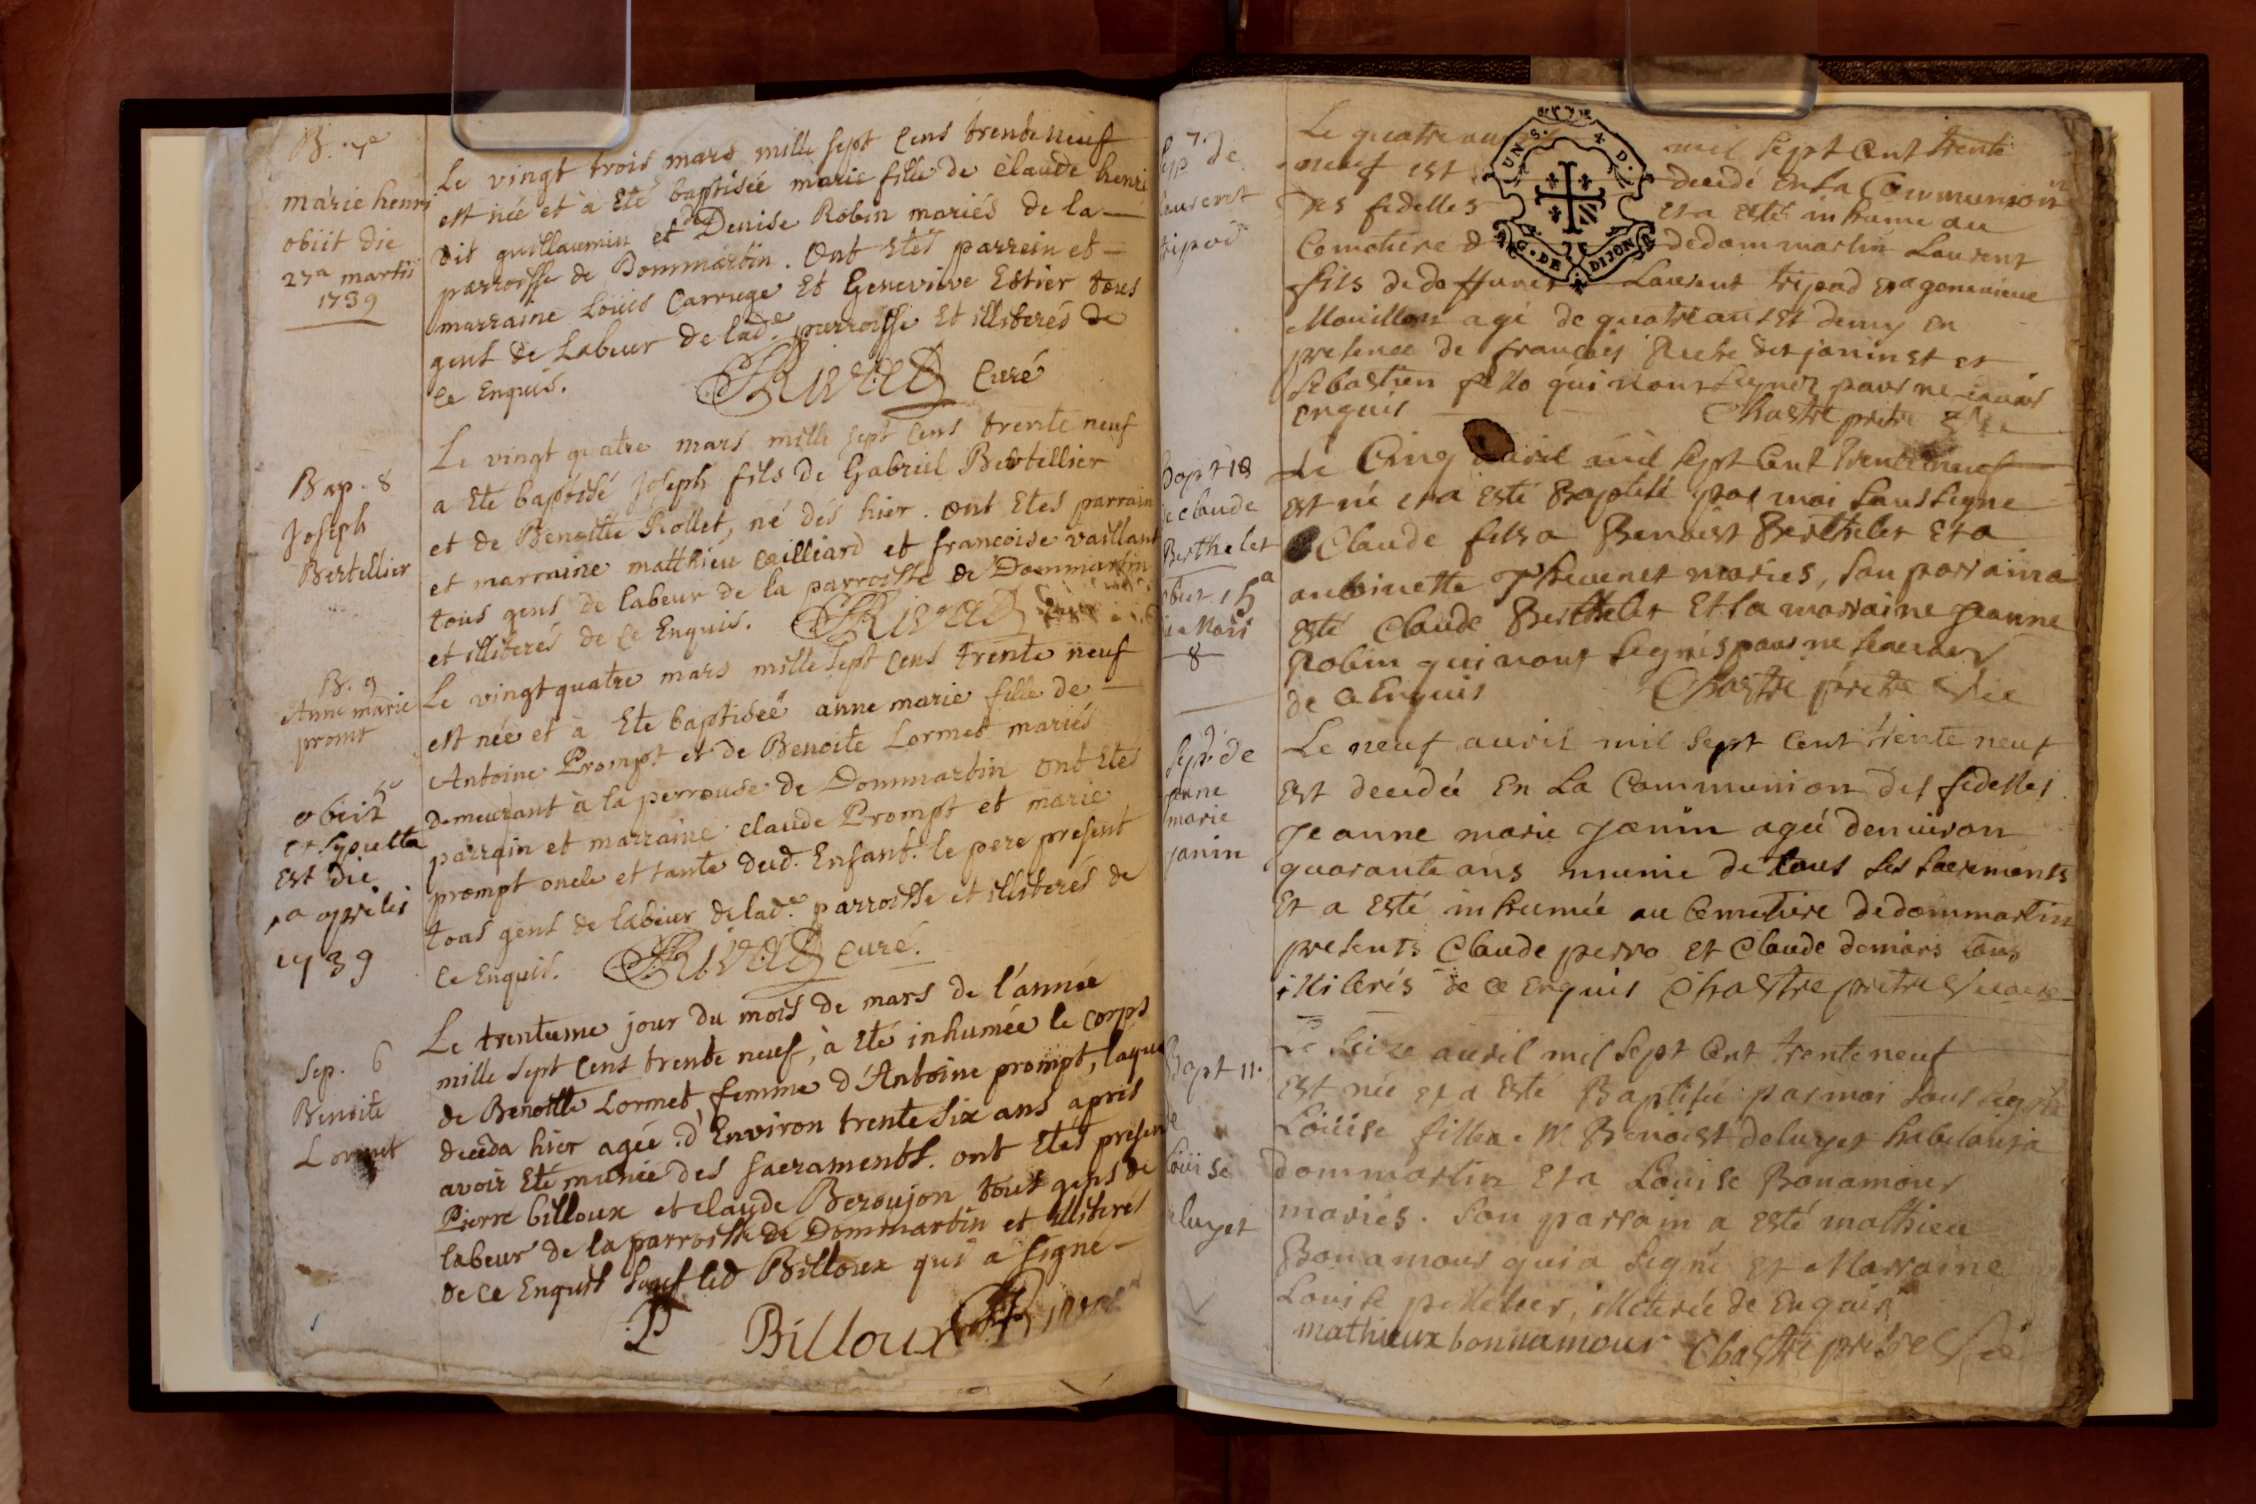 B. 7e
marie henri
obiit die
27a martii
1739
Le vingt trois mars mille sept cens trente neuf
est née et à Eté baptisée marie fille de claude henri
dit guillaumin et de Denise Robin mariés de la
parroisse de Dommartin. Ont Etés parrein et
marraine Louis Carruge Et Genevieve Estier tous
gens de Labeur de lade. parroisse Et illiterés de
ce Enquis. Curé
Bap. 8
Joseph
Bertellier
Le vingt quatre mars mille sept cens trente neuf
a Eté baptisé Joseph fils de Gabriel Bertellier
et de Benoitte Rollet, né dés hier. ont Etes parrain
et marraine matthieu cailliard et francoise vaillant
tous gens de labeur de la parroisse de Dommartin
et illiterés de ce Enquis.
B. 9
Anne marie
promt
obiit
et sepulta
est die
1a aprilis
1739
Le vingt quatre mars mille sept cens trente neuf
est née et à Eté baptiseé anne marie fille de
Antoine Prompt et de Benoite Lormet mariés
demeurant à la perrouse de Dommartin ont Etés
parrain et marraine claude Prompt et marie
prompt oncle et tante dud. Enfant. le pere present
tous gens de labeur de lade. parroisse et illiterés de
ce Enquis. curé.
Sep. 6
Benoite
Lormet
Le trentieme jour du mois de mars de l'année
mille sept cens trente neuf, à Eté inhumée le corps
de Benoitte Lormet femme d'Antoine prompt, laque
deceda hier agée d'Environ trente six ans aprés
avoir Eté munie des sacraments. ont Etés presen
Pierre billoux et claude Beroujon tous gens de
labeur de la parroisse de Dommartin et illiteres
de ce Enquis sauf led Billoux qui a signe
P Billoux
7.
Sep de
Laurent
tripod
Le quatre mil sept cent trente
neuf est decedé en La Communion
des fidelles et a esté inhumé au
Cemetiere de dommartin Laurent
fils de deffunct Laurent tripod et a genevieve
Mouillon agé de quatre ans et demy en
presence de françois dit janin et
sebastien qui n'ont signez pour ne scavoir
enquis Chastre pretre
Bapt 18
de claude
Berthelet
Le Cinq avril mil sept Cent trente neuf
est né et a esté Baptisé par moi soussigne
Claude fils a Benoist Berthelet et a
antoinette Thevenet mariés, son parrain a
esté Claude Berthelet Et la marraine Jeanne
Robin qui n'ont signés pour ne
de ce Enquis Chastre pretre
Sep. de
jeane
marie
janin
Le neuf avril mil sept cent trente neuf
est decedée en La Communion des fidelles
Jeanne marie Janin ageé denviron
quarante ans munie de tous ses sacrements
et a esté inhumée au Cemetiere de dommartin
presents Claude perro et Claude demars tous
illiterés de ce enquis Chastre pretre vicaire
Bapt 11.
de
Louise
deluyet
Le Seize avril mil sept Cent trente neuf
est née et a esté Baptisée par moi soussigné
Louise fille a Mr Benoist deluyet habitant a
dommartin et a Louise Bonamour
mariés. Son parrain a esté mathieu
Bonamour qui a signé et Marraine
Louise pelletier, illiterée de Enquis
mathieux bonnamour Chastre pretre
UNS. X D.
G. DE DIJON